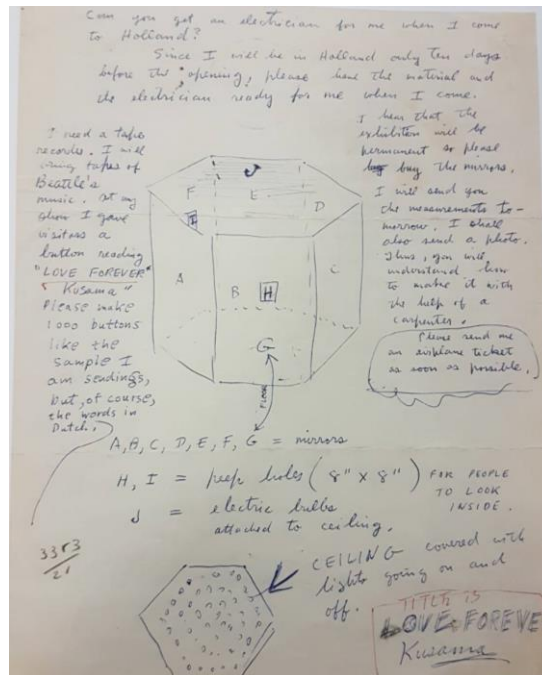 Can you get an electrician for me when I come
to Holland?
Since I will be in Holland only ten days
before the opening, please have the material and
the electrician ready for me when I come.
I need a tape
recorder. I will
bring tapes of
Beattle's
music. At my
show I gave
visitors a
button reading
"LOVE FOREVER"
Kusama"
Please make
1000 buttons
like the
sample I
am sendings,
but, of course,
the words in
Dutch.
I hear that the
exhibition will be
permanent so please
buy the mirrors.
I will send you
the measurements to-
morrow. I shall
also send a photo.
Thus, you will
understand how
to make it with
the help of a
carpenter.
Please send me
an airplane ticket
as soon as possible.
J
F
E
D
I
A
B
H
C
G
FLOOR
A, B, C, D, E, F, G = mirrors
H, I = peep holes (8" x 8") FOR PEOPLE
TO LOOK
INSIDE.
J = electric bulbs
attached to ceiling.
3353
21
CEILING covered with
lights going on and
off.
TITLE IS
LOVE FOREVE
Kusama